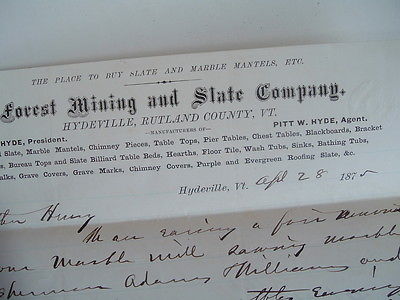 THE PLACE TO BUY SLATE AND MARBLE MANTELS, ETC.
Forest Mining and Slate Company.
HYDEVILLE, RUTLAND COUNTY, VT.
HYDE, President.
MANUFACTURERS OF
PITT W. HYDE, Agent.
Slate, Marble Mantels, Chimney Pieces, Table Tops, Pier Tables, Chest Tables, Blackboards, Bracket
Bureau Tops and Slate Billiard Table Beds, Hearths, Floor Tile, Wash Tubs, Sinks, Bathing Tubs,
Grave Covers, Grave Marks, Chimney Covers, Purple and Evergreen Roofing Slate, &c.
Hydeville, Vt. Apl 28 187
Henry
a fair
our marble mill sawing marble
Sherman Adams & Williams and